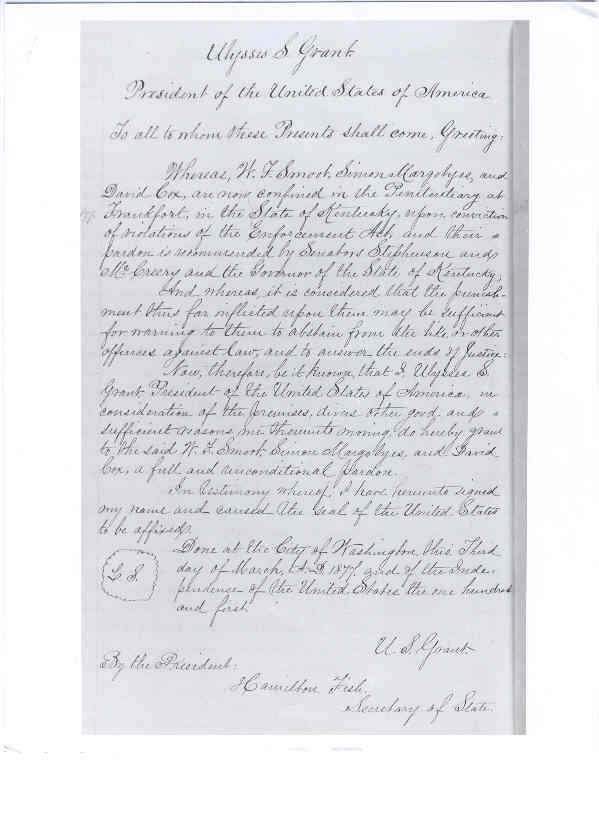 Ulysses S. Grant
President of the United States of America
To all to whom these Presents shall come, Greeting:
Whereas, W. F. Smoot, Simon Margolyes, and
David Cox, are now confined in the Penitentiary at
Frankfort, in the State of Kentucky, upon conviction
of violations of the Enforcement Act, and their
pardon is recommended by Senators Stephenson and
McCreery and the Governor of the State of Kentucky;
And whereas, it is considered that the punish-
ment thus far inflicted upon them may be sufficient
for warning to them to abstain from the like, or other
offences against law, and to answer the ends of Justice:
Now, therefore, be it known, that I, Ulysses S.
Grant President of the United States of America, in
consideration of the premises, divers other good and
sufficient reasons me thereunto moving, do hereby grant
to the said W. F. Smoot, Simon Margolyes, and David
Cox, a full and unconditional pardon.
In testimony whereof, I have hereunto signed
my name and caused the seal of the United States
to be affixed.
Done at the City of Washington, this Third
day of March, A.D. 1877, and of the Inde-
pendence of the United States the one hundred
and first.
L. S.
U. S. Grant
By the President:
Hamilton Fish,
Secretary of State.